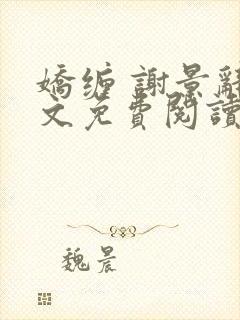 嬌缠 謝景辭
文免費閱讀
魏晨